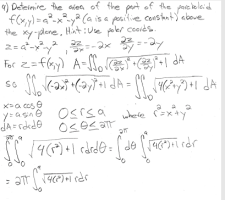 9) Determine the area of the part of the paraboloid
f(x,y)=a²-x²-y² (a is a positive constant) above
the xy-plane. Hint: Use polar coords.
z=a²-x²-y², ∂z/∂x=-2x ∂z/∂y=-2y
For z=f(x,y) A=∬√((∂z/∂x)²+(∂z/∂y)²+1) dA
so ∬√((-2x)²+(-2y)²+1) dA = ∬√(4(x²+y²)+1) dA
x=a cosθ
y=a sinθ 0≤r≤a where r²=x²+y²
dA=rdrdθ 0≤θ≤2π
∫₀^2π ∫₀^a √(4(r²)+1) rdrdθ = ∫₀^2π dθ ∫₀^a √(4(r²)+1) rdr
= 2π ∫₀^a √(4(r²)+1) rdr